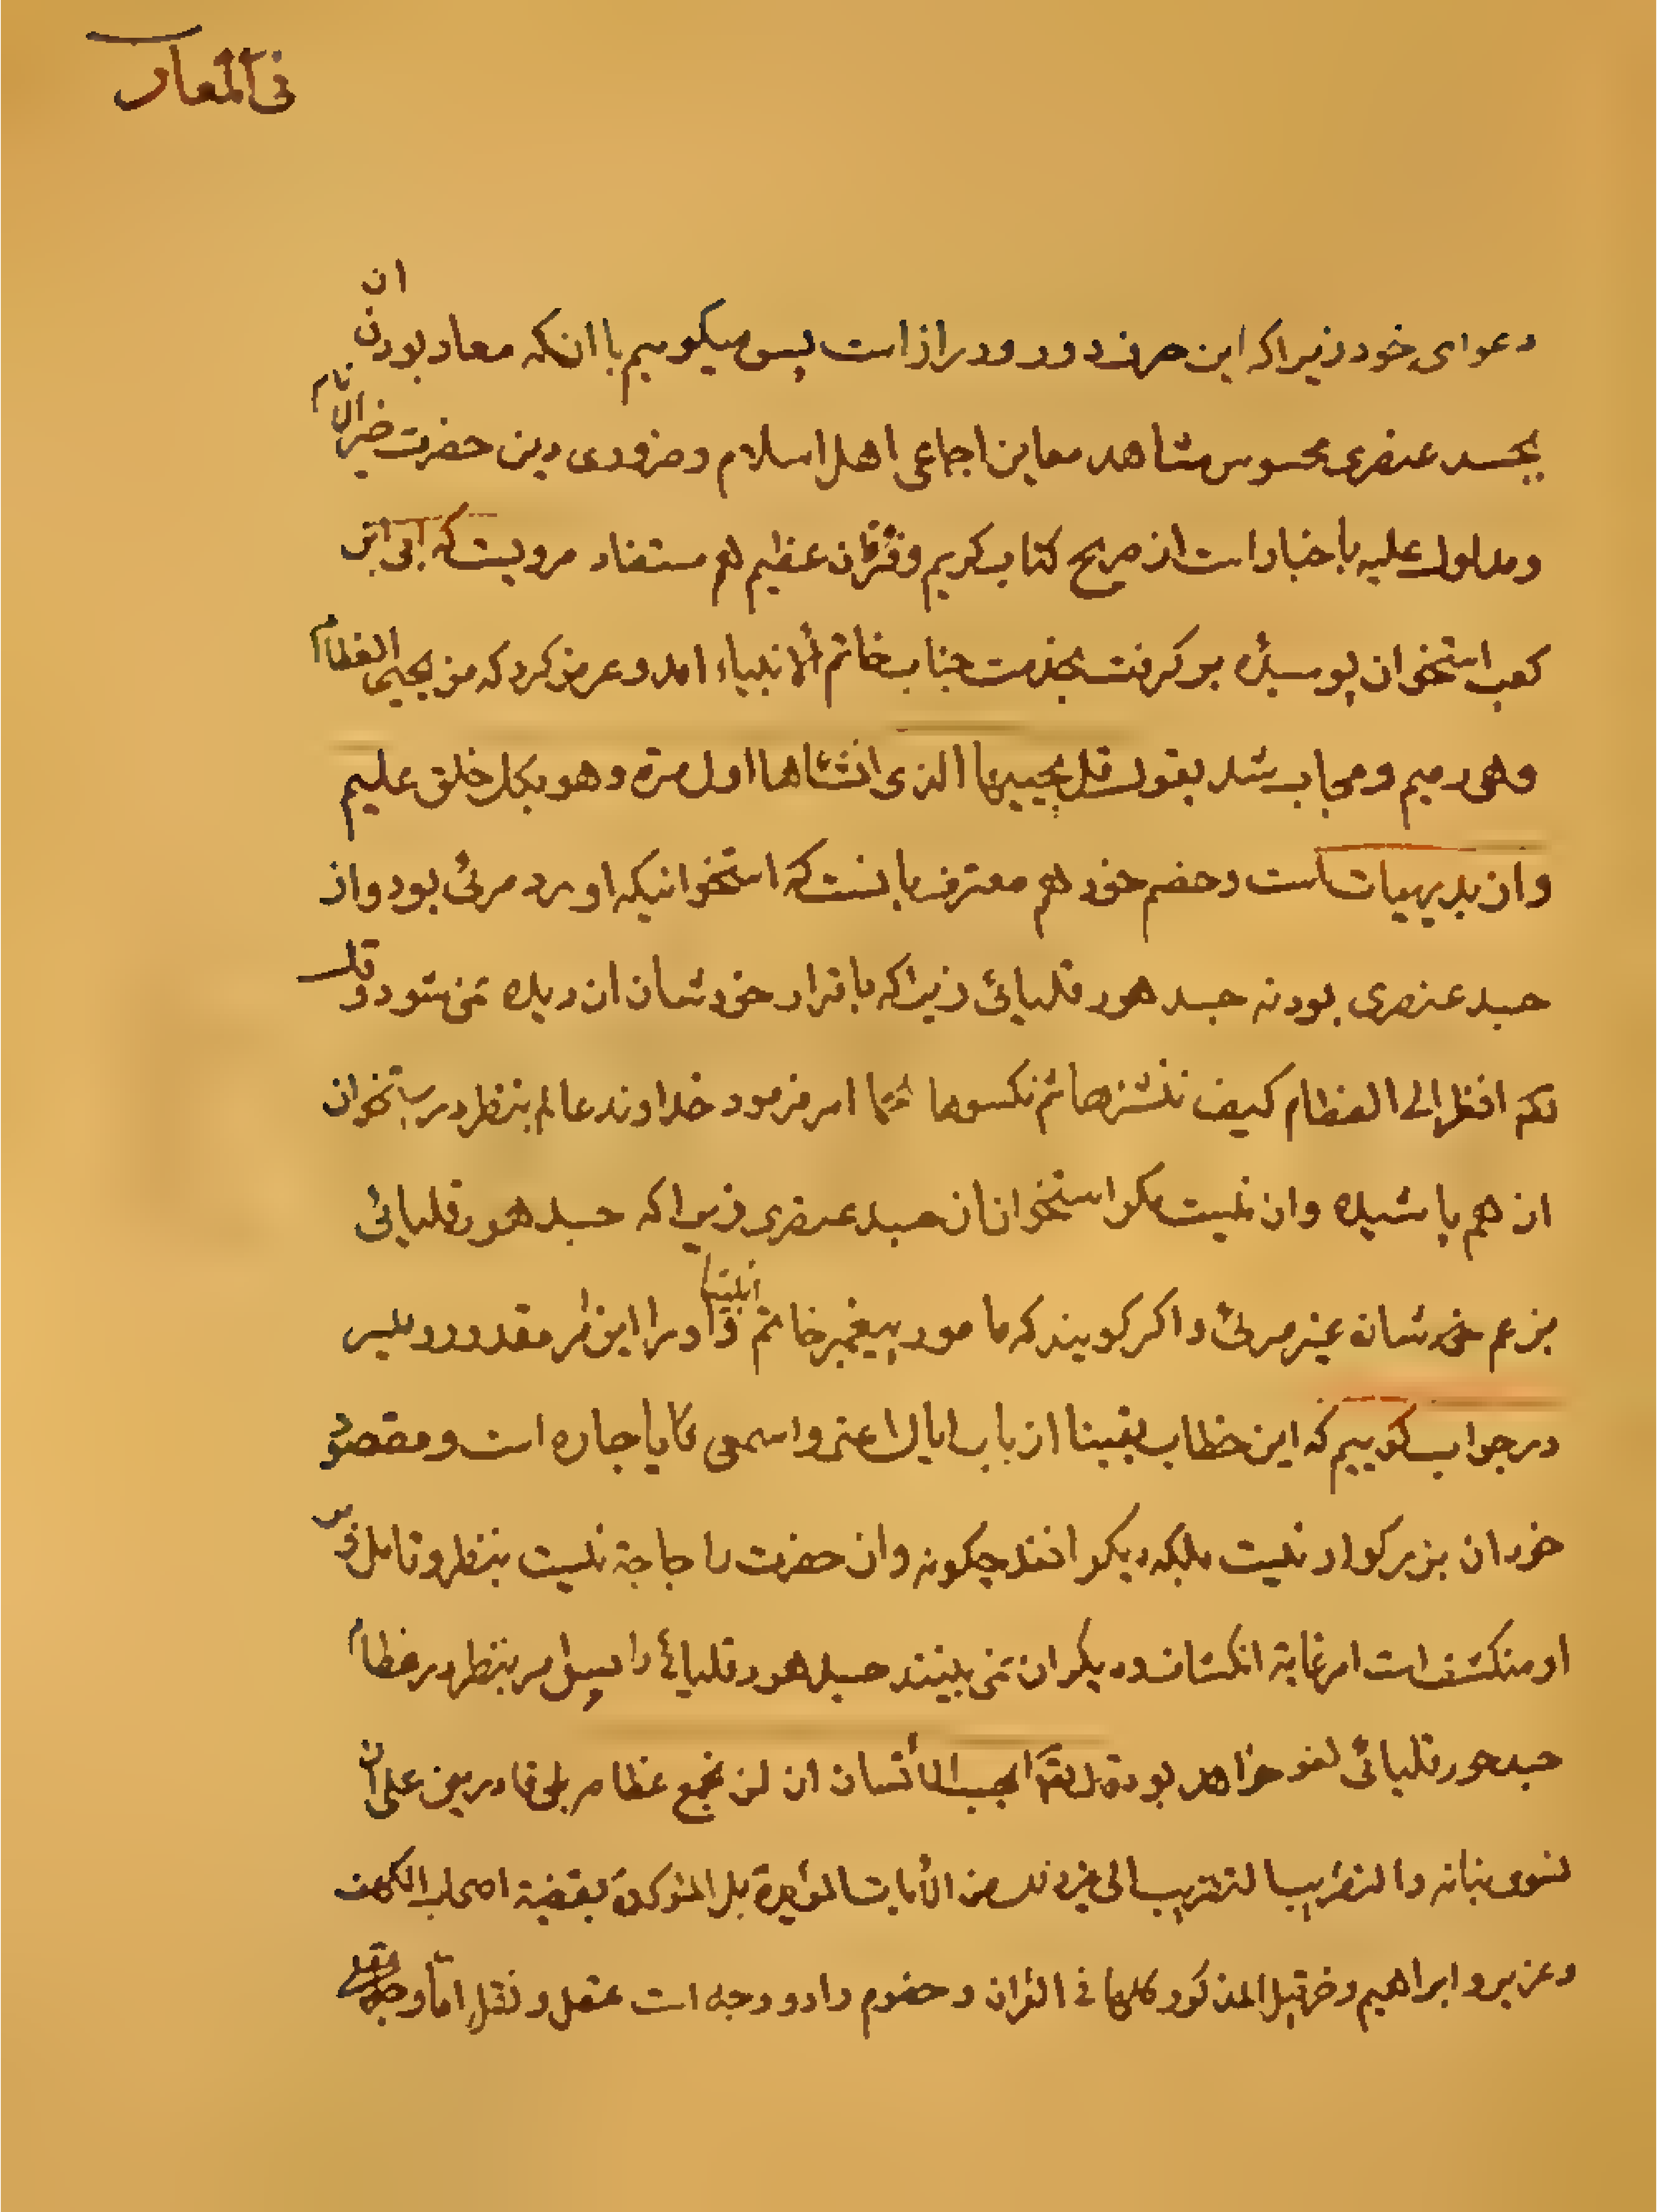 فی المعاد
دعوای خود زیرا که این حرف دور و دراز است پس میکوییم با انکه معاد بودن ان
بجسد عنصری محسوس مشاهد معاین اجماعی اهل اسلام و ضروری دین حضرت خیر الانام
و مدلول علیه باخبار است از صریح کتاب کریم و قرآن عظیم هم مستفاد مرویست که ابی ابن
کعب استخوان پوسیده بر کرفت بخدمت جناب خاتم الانبیاء امد و عرض کرد که من یحیی العظام
وهی رمیم و مجاب شد بقول قل یحییها الذی انشاها اول مرة وهو بکل خلق علیم
و از بدیهیات است و خصم خود هم معترف بانست که استخوانیکه اورد مرئی بود و از
جسد عنصری بود نه جسد هورقلیائی زیرا که باقرار خودشان ان دیده نمی شود و قال
انظر الی العظام کیف ننشزها ثم نکسوها لحما امر فرمود خداوند عالم بنظر در استخوان
ان هم پاشیده و ان نیست مکر استخوان ان جسد عنصری زیرا که جسد هورقلیائی
بزعم خودشان غیر مرئی و اکر کویند که مامور پیغمبر خاتم انبیا و او را این امر مقدور و میسر
در جواب کوییم که این خطاب یقینا از باب ایاک اعنی و اسمعی یا جاره است و مقصود
خود ان بزرکوار نیست بلکه دیکرانند چکونه و ان حضرت را حاجة نیست بنظر و تامل و بر
او منکشف است امر غایة انکشاف و دیکران نمی بینند جسد هورقلیائی را پس امر بنظر در عظام
جسد هورقلیائی لغو خواهد بود قوله ایحسب الانسان ان لن نجمع عظامه بلی قادرین علی ان
نسوی بنانه و التقریب التقریب الی غیر ذلک من الایات المؤیدة بل المؤکدة بقضیة اصحاب الکهف
و عزیر و ابراهیم و حزقیل المذکور کلها فی القران و خصوم را دو وجه است عقل و نقل اما وجه عقلی